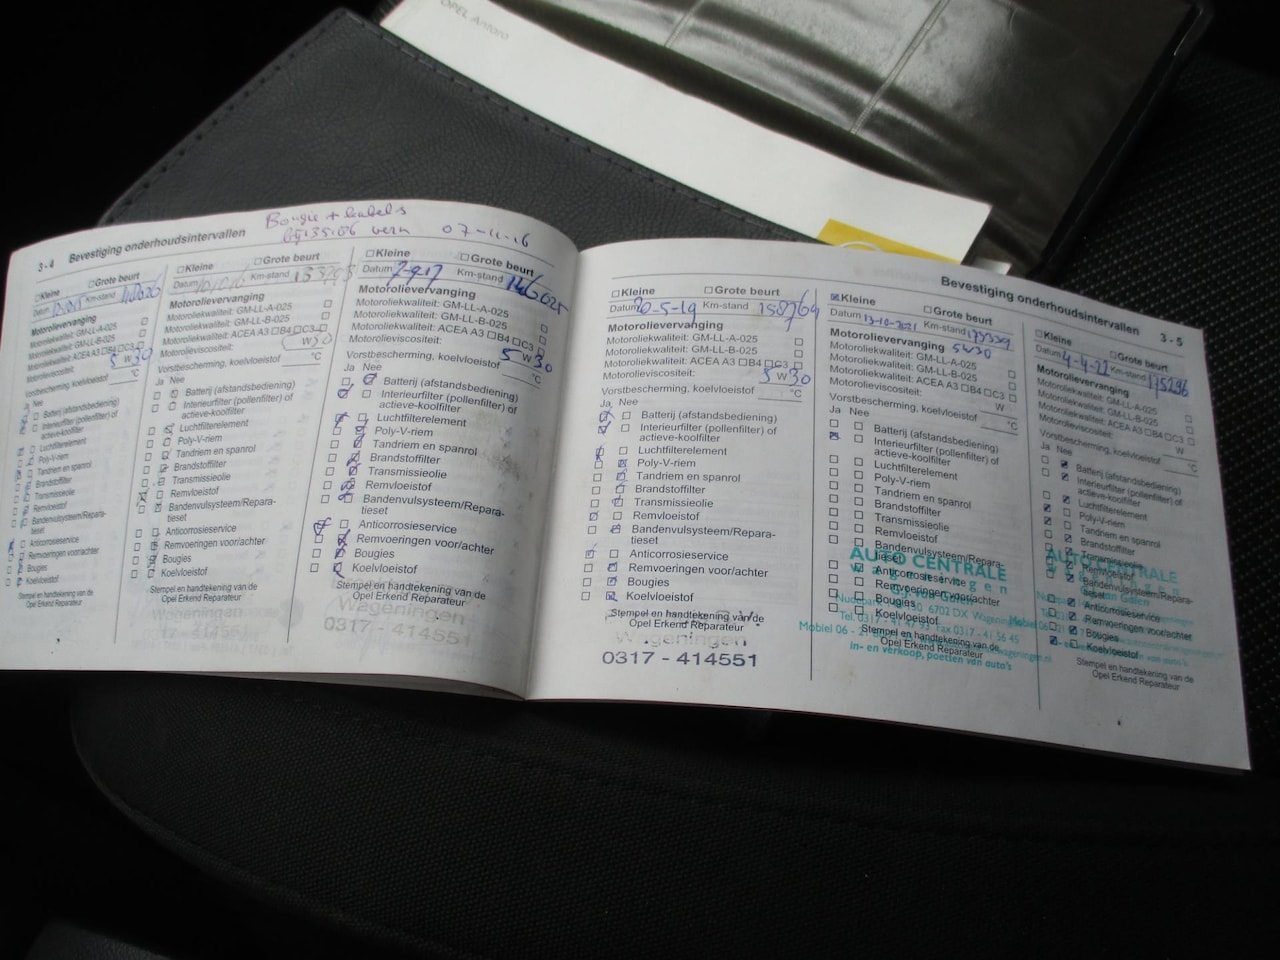 OPEL Antara
Bougie + kabels
07-11-16
3 - 4 Bevestiging onderhoudsintervallen
☐Kleine ☐Grote beurt
Datum Km-stand
Motorolievervanging
Motoroliekwaliteit: GM-LL-A-025 ☐
Motoroliekwaliteit: GM-LL-B-025 ☐
Motoroliekwaliteit: ACEA A3 ☐B4 ☐C3 ☐
Motorolieviscositeit: 5 W 30
Vorstbescherming, koelvloeistof °C
Ja Nee
Batterij (afstandsbediening)
Interieurfilter (pollenfilter) of
actieve-koolfilter
Luchtfilterelement
Poly-V-riem
Tandriem en spanrol
Brandstoffilter
Transmissieolie
Remvloeistof
Bandenvulsysteem/Repara-
tieset
Anticorrosieservice
Remvoeringen voor/achter
Bougies
Koelvloeistof
Stempel en handtekening van de
Opel Erkend Reparateur
☐Kleine ☐Grote beurt
Datum Km-stand
Motorolievervanging
Motoroliekwaliteit: GM-LL-A-025 ☐
Motoroliekwaliteit: GM-LL-B-025 ☐
Motoroliekwaliteit: ACEA A3 ☐B4 ☐C3 ☐
Motorolieviscositeit: W30
Vorstbescherming, koelvloeistof °C
Ja Nee
Batterij (afstandsbediening)
Interieurfilter (pollenfilter) of
actieve-koolfilter
Luchtfilterelement
Poly-V-riem
Tandriem en spanrol
Brandstoffilter
Transmissieolie
Remvloeistof
Bandenvulsysteem/Repara-
tieset
Anticorrosieservice
Remvoeringen voor/achter
Bougies
Koelvloeistof
Stempel en handtekening van de
Opel Erkend Reparateur
Wageningen
0317 - 414551
☐Kleine ☐Grote beurt
Datum 7-9-17 Km-stand 146025
Motorolievervanging
Motoroliekwaliteit: GM-LL-A-025 ☐
Motoroliekwaliteit: GM-LL-B-025 ☐
Motoroliekwaliteit: ACEA A3 ☐B4 ☐C3 ☐
Motorolieviscositeit: 5 W 30
Vorstbescherming, koelvloeistof °C
Ja Nee
Batterij (afstandsbediening)
Interieurfilter (pollenfilter) of
actieve-koolfilter
Luchtfilterelement
Poly-V-riem
Tandriem en spanrol
Brandstoffilter
Transmissieolie
Remvloeistof
Bandenvulsysteem/Repara-
tieset
Anticorrosieservice
Remvoeringen voor/achter
Bougies
Koelvloeistof
Stempel en handtekening van de
Opel Erkend Reparateur
Wageningen
0317 - 414551
Bevestiging onderhoudsintervallen 3 - 5
☐Kleine ☐Grote beurt
Datum 20-5-19 Km-stand 158764
Motorolievervanging
Motoroliekwaliteit: GM-LL-A-025 ☐
Motoroliekwaliteit: GM-LL-B-025 ☐
Motoroliekwaliteit: ACEA A3 ☐B4 ☐C3 ☐
Motorolieviscositeit: 5 W 30
Vorstbescherming, koelvloeistof °C
Ja Nee
Batterij (afstandsbediening)
Interieurfilter (pollenfilter) of
actieve-koolfilter
Luchtfilterelement
Poly-V-riem
Tandriem en spanrol
Brandstoffilter
Transmissieolie
Remvloeistof
Bandenvulsysteem/Repara-
tieset
Anticorrosieservice
Remvoeringen voor/achter
Bougies
Koelvloeistof
Stempel en handtekening van de
Opel Erkend Reparateur
Wageningen
0317 - 414551
☒Kleine ☐Grote beurt
Datum 13-10-2021 Km-stand
Motorolievervanging 5W30
Motoroliekwaliteit: GM-LL-A-025 ☐
Motoroliekwaliteit: GM-LL-B-025 ☐
Motoroliekwaliteit: ACEA A3 ☐B4 ☐C3 ☐
Motorolieviscositeit: W
Vorstbescherming, koelvloeistof °C
Ja Nee
Batterij (afstandsbediening)
Interieurfilter (pollenfilter) of
actieve-koolfilter
Luchtfilterelement
Poly-V-riem
Tandriem en spanrol
Brandstoffilter
Transmissieolie
Remvloeistof
Bandenvulsysteem/Repara-
tieset
AUTO CENTRALE
Anticorrosieservice
Remvoeringen voor/achter
6702 DX Wageningen
Bougies
Koelvloeistof
Mobiel 06 -
Stempel en handtekening van de
Opel Erkend Reparateur
in- en verkoop, poetsen van auto's
☐Kleine ☐Grote beurt
Datum 4-4-22 Km-stand 175296
Motorolievervanging
Motoroliekwaliteit: GM-LL-A-025 ☐
Motoroliekwaliteit: GM-LL-B-025 ☐
Motoroliekwaliteit: ACEA A3 ☐B4 ☐C3 ☐
Motorolieviscositeit: W
Vorstbescherming, koelvloeistof °C
Ja Nee
Batterij (afstandsbediening)
Interieurfilter (pollenfilter) of
actieve-koolfilter
Luchtfilterelement
Poly-V-riem
Tandriem en spanrol
Brandstoffilter
Transmissieolie
Remvloeistof
AUTO CENTRALE
Bandenvulsysteem/Repara-
tieset
Anticorrosieservice
Remvoeringen voor/achter
Bougies
Koelvloeistof
Stempel en handtekening van de
Opel Erkend Reparateur